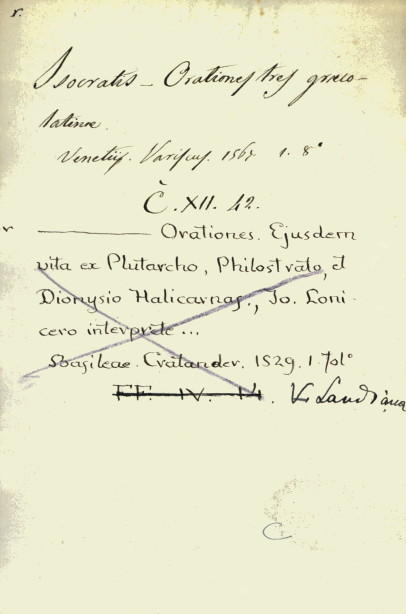 r.
Isocratis — Orationes tres græco-
latinæ.
Venetiis. Variscus. 1. 8°
Č. XII. 42.
r ——— Orationes. Ejusdem
vita ex Plutarcho, Philostrato, et
Dionysio Halicarnas., Jo. Loni-
cero interprete...
Basileae. Cratander. 1529. 1. fol°
FF. IV. 14. V. Landiana
C